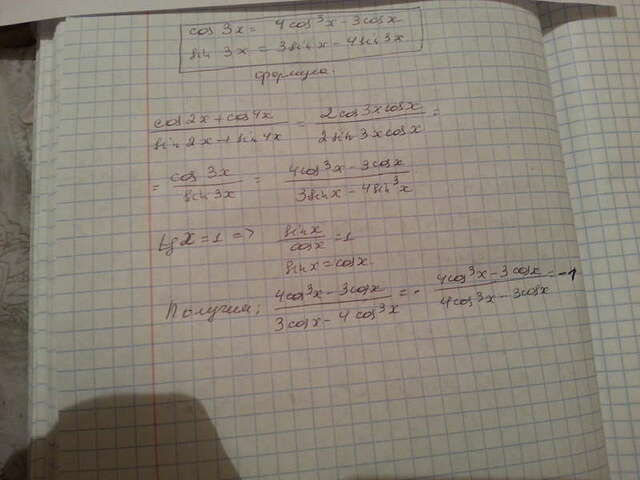 cos 3x = 4cos³x - 3cosx
sin 3x = 3sinx - 4sin³x
формула.
(cos2x + cos4x)/(sin2x + sin4x) = (2cos3xcosx)/(2sin3xcosx) =
= (cos3x)/(sin3x) = (4cos³x - 3cosx)/(3sinx - 4sin³x)
tgx = 1 => (sinx)/(cosx) = 1
sinx = cosx.
Получим: (4cos³x - 3cosx)/(3cosx - 4cos³x) = - (4cos³x - 3cosx)/(4cos³x - 3cosx) = -1